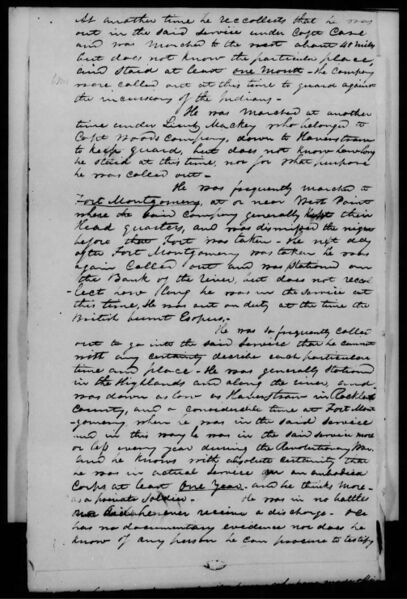 At another time he reccollects that he was
out in the said service under Capt Case
and was Marched to the west about 40 miles
but does not know the particular place,
and staid at least one Month - The Company
were called out at this time to guard against
the incursions of the Indians -
He was marched at another
time under Lieut Mackey who belonged to
Capt Woods Company, down to Haverstraw
to keep guard, but does not know how long
he staid at this time, nor for what purpose
he was called out -
He was frequently marched to
Fort Montgomery, at or near West Point
where the said Company generally kept their
Head quarters, and was dismissed the night
before that Fort was taken - The next day
after Fort Montgomery was taken he was
again called out and was stationed on
the Bank of the river, but does not recol
-lect how long he was in the service at
this time, He was out on duty at the time the
British burnt Esopus,-
He was so frequently called
out to go into the said service that he cannot
with any certainty describe each particular
time and place - He was generally stationed
in the Highlands and along the river, and
was down as low as Haverstraw in Rockland
County, and a considerable time at Fort Mont
-gomery where he was in the said service
and in this way he was in the said service more
or less every year during the Revolutionary War.
and he knows with absolute certainty that
he was in actual service in an embodied
Corps at least One Year. and he thinks more-
as a private Soldier. He was in no battles
nor did he ever receive a discharge - He
has no documentary evidence nor does he
know of any person he can procure to testify